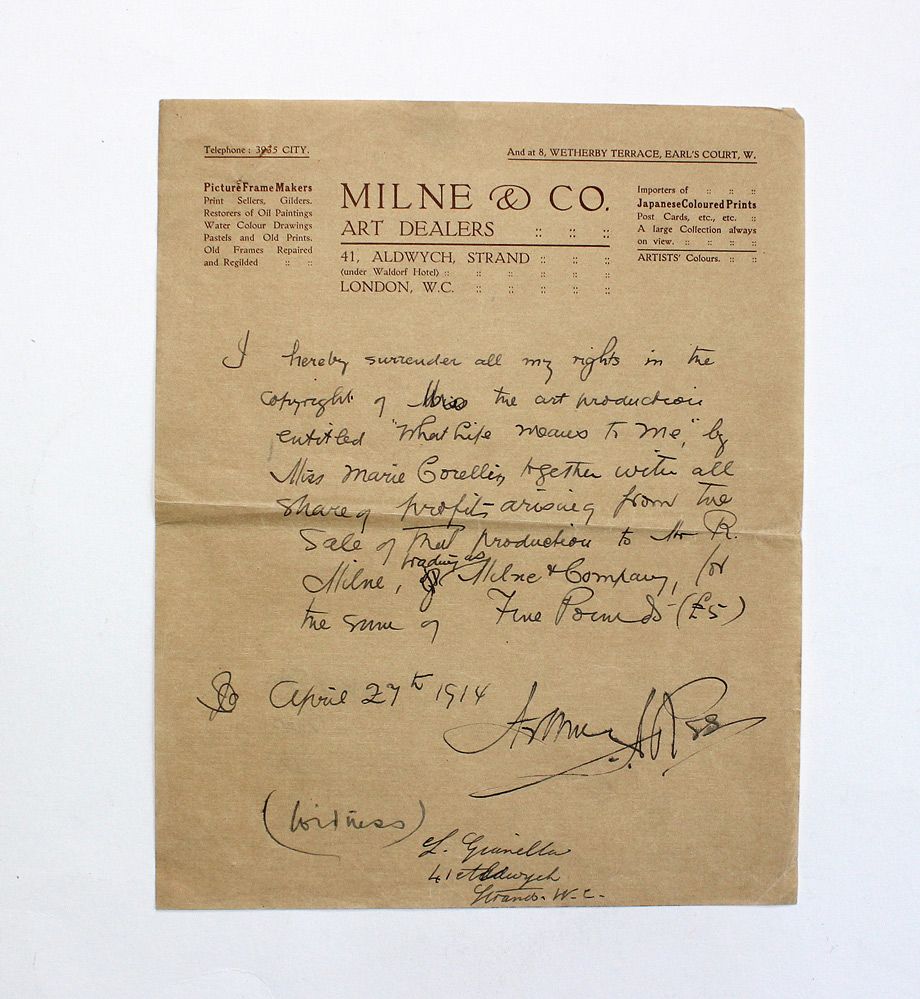 Telephone: 3935 CITY.
And at 8, WETHERBY TERRACE, EARL'S COURT, W.
Picture Frame Makers
Print Sellers, Gilders.
Restorers of Oil Paintings
Water Colour Drawings
Pastels and Old Prints.
Old Frames Repaired
and Regilded :: ::
MILNE & CO.
ART DEALERS :: :: ::
41, ALDWYCH, STRAND :: :: ::
(under Waldorf Hotel) :: :: :: :: :: ::
LONDON, W.C. :: :: :: :: ::
Importers of :: :: ::
Japanese Coloured Prints
Post Cards, etc., etc. ::
A large Collection always
on view. :: :: :: ::
ARTISTS' Colours. :: ::
I hereby surrender all my rights in the
copyright of the art production
entitled "What Life means to Me," by
Miss Marie Corelli, together with all
share of profits arising from the
Sale of that production to Mr R.
trading as
Milne, Milne & Company, for
the sum of Five Pounds (£5)
April 27th 1914
(Witness)
41 Aldwych
Strand. W.C.